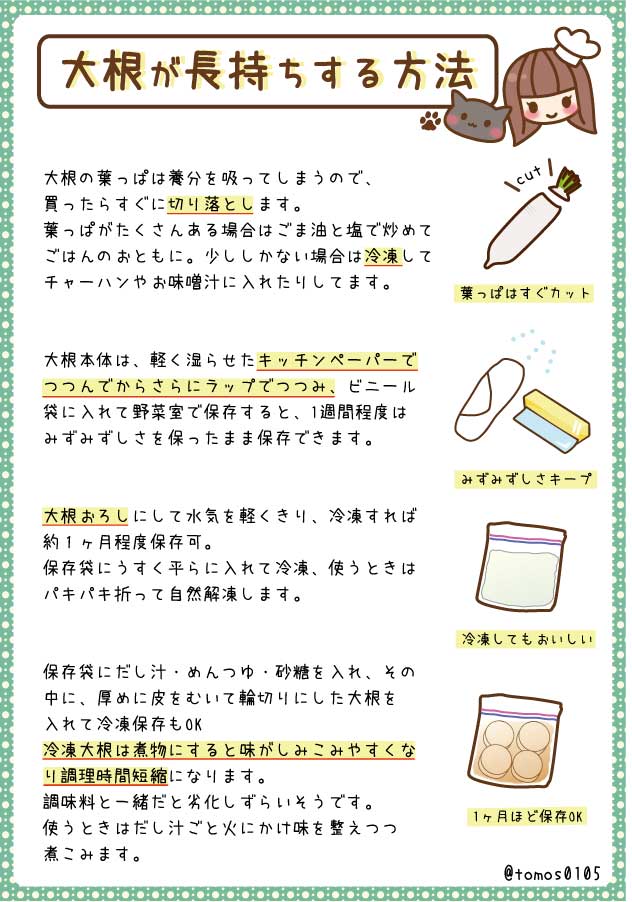 大根が長持ちする方法
大根の葉っぱは養分を吸ってしまうので、
買ったらすぐに切り落とします。
葉っぱがたくさんある場合はごま油と塩で炒めて
ごはんのおともに。少ししかない場合は冷凍して
チャーハンやお味噌汁に入れたりしてます。
cut
葉っぱはすぐカット
大根本体は、軽く湿らせたキッチンペーパーで
つつんでからさらにラップでつつみ、ビニール
袋に入れて野菜室で保存すると、1週間程度は
みずみずしさを保ったまま保存できます。
みずみずしさキープ
大根おろしにして水気を軽くきり、冷凍すれば
約1ヶ月程度保存可。
保存袋にうすく平らに入れて冷凍、使うときは
パキパキ折って自然解凍します。
冷凍してもおいしい
保存袋にだし汁・めんつゆ・砂糖を入れ、その
中に、厚めに皮をむいて輪切りにした大根を
入れて冷凍保存もOK
冷凍大根は煮物にすると味がしみこみやすくな
り調理時間短縮になります。
調味料と一緒だと劣化しずらいそうです。
使うときはだし汁ごと火にかけ味を整えつつ
煮こみます。
1ヶ月ほど保存OK
@tomos0105